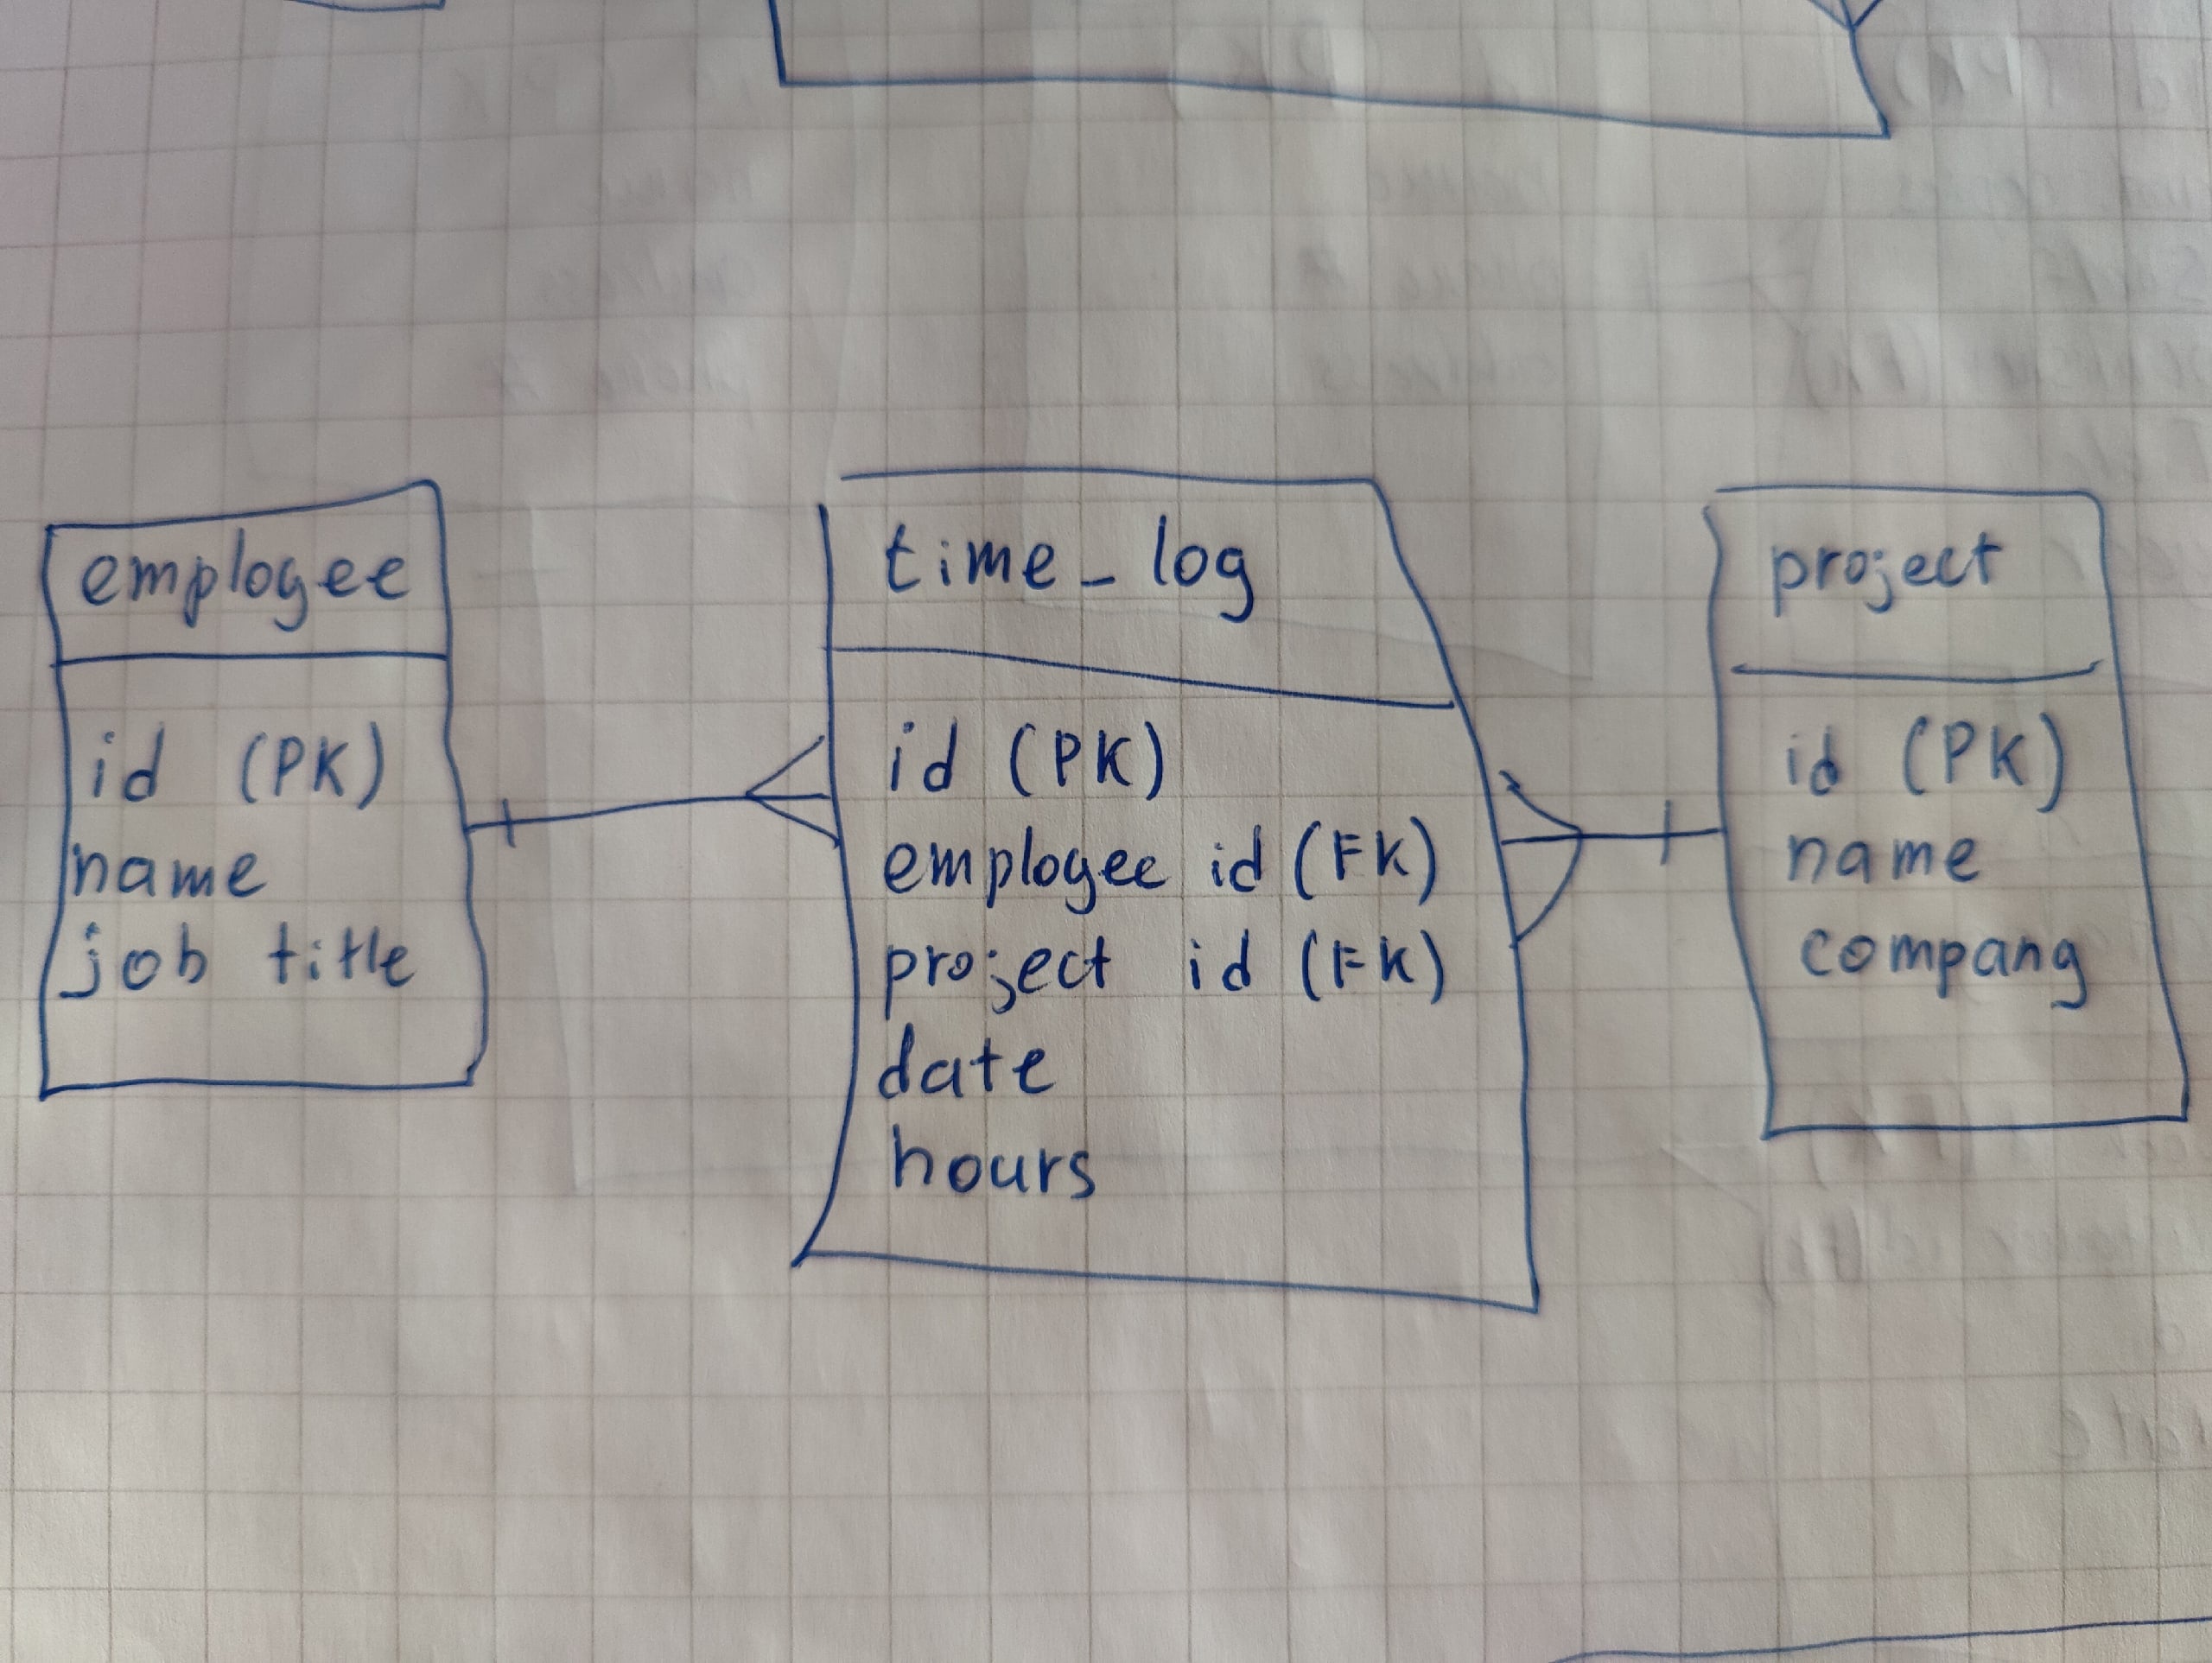 employee
id (PK)
name
job title
time_log
id (PK)
employee id (FK)
project id (FK)
date
hours
project
id (PK)
name
company